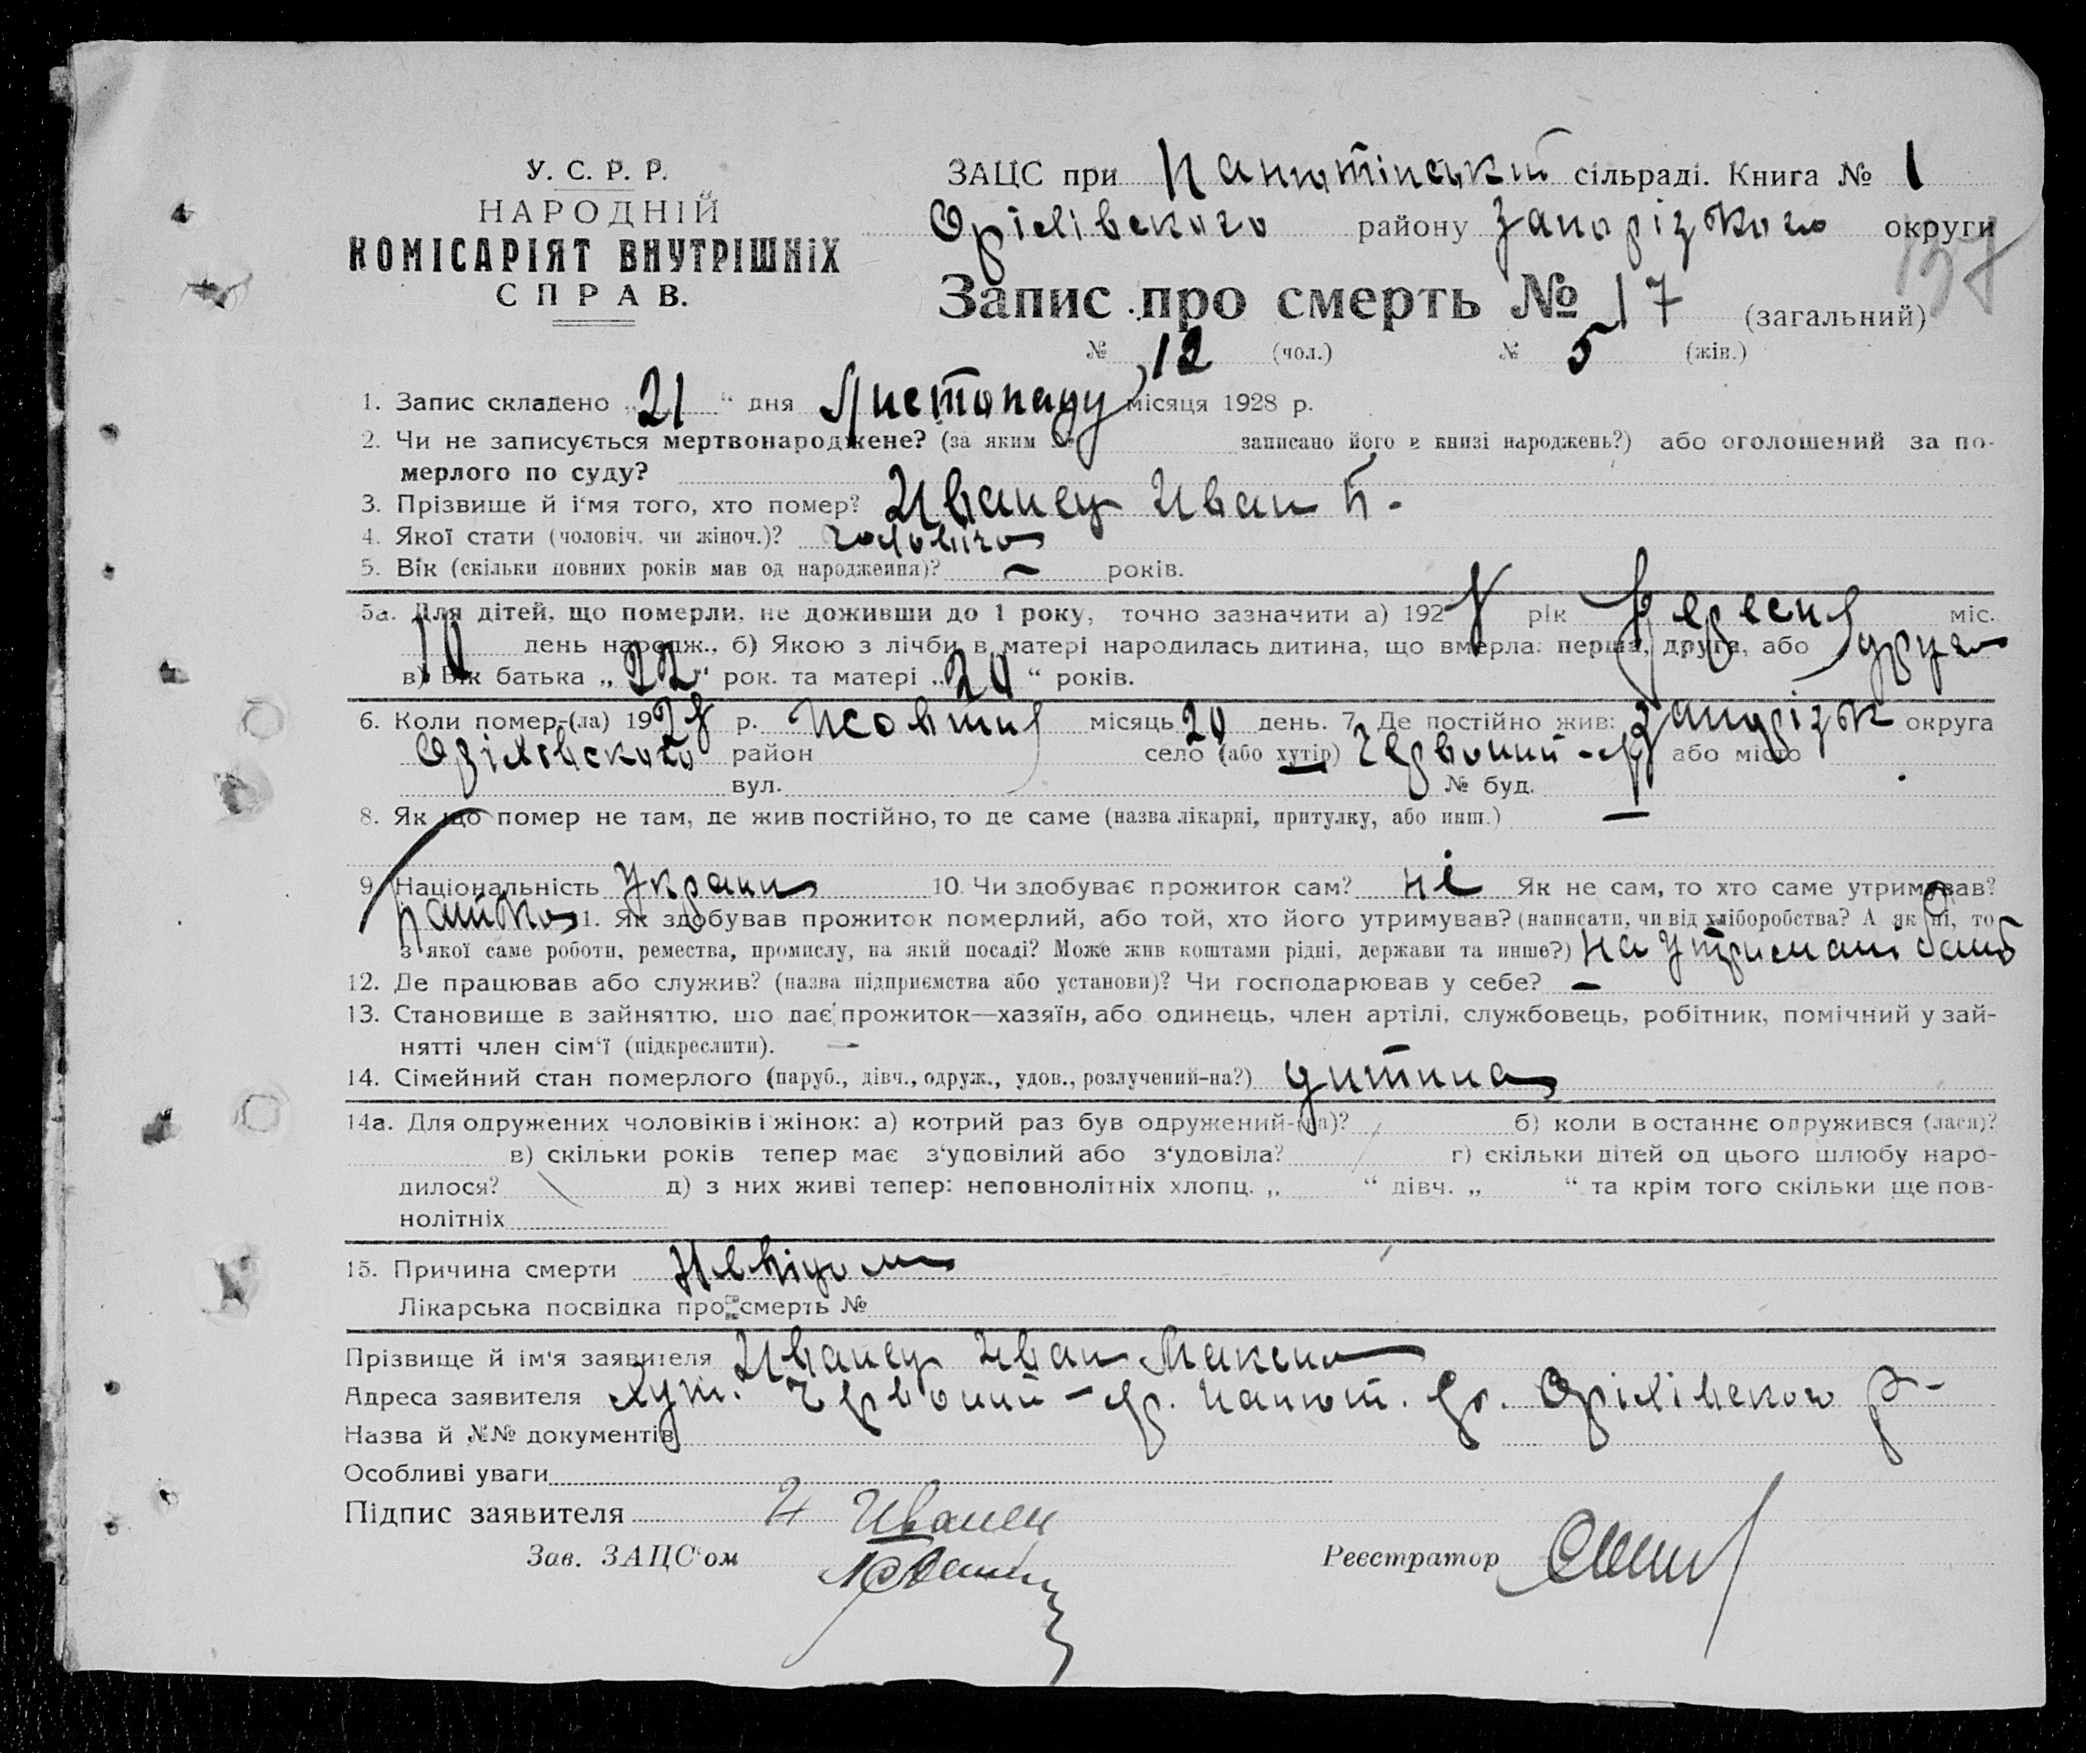 У. С. Р. Р.
НАРОДНІЙ
КОМІСАРІЯТ ВНУТРІШНІХ
СПРАВ.
ЗАЦС при сільраді. Книга № 1
Орілівского району Запорізкого округи
137
Запис про смерть № 17 (загальний)
№ 12 (чол.) № 5 (жін.)
1. Запис складено „ 21 “ дня Листопаду місяця 1928 р.
2. Чи не записується мертвонароджене? (за яким № записано його в книзі народжень?) або оголошений за по-
мерлого по суду?
3. Прізвище й і‘мя того, хто помер? Иванец Иван
4. Якої стати (чоловіч. чи жіноч.)? чоловіча
5. Вік (скільки повних років мав од народження)? — років.
5а. Для дітей, що померли, не доживши до 1 року, точно зазначити а) 1928 рік Вересня міс.
10 день народж., б) Якою з лічби в матері народилась дитина, що вмерла: перша, друга, або друга
в) Вік батька „ 22 “ рок. та матері „ 20 “ років.
6. Коли помер-(ла) 1928 р. Жовтня місяць 20 день. 7. Де постійно жив: Запорізк округа
Орілівского район село (або хутір) Червоний-Яр або місто
вул. № буд.
8. Як що помер не там, де жив постійно, то де саме (назва лікарні, притулку, або инш.) —
9. Національність Україн 10. Чи здобуває прожиток сам? ні Як не сам, то хто саме утримував?
батько 11. Як здобував прожиток померлий, або той, хто його утримував? (написати, чи від хліборобства? А як ні, то
з якої саме роботи, ремества, промислу, на якій посаді? Може жив коштами рідні, держави та инше?) на утримані бать
12. Де працював або служив? (назва підприємства або установи)? Чи господарював у себе? —
13. Становище в зайняттю, що дає прожиток—хазяїн, або одинець, член артілі, службовець, робітник, помічний у зай-
нятті член сім‘ї (підкреслити). —
14. Сімейний стан померлого (паруб., дівч., одруж., удов., розлучений-на?) дитина
14а. Для одружених чоловіків і жінок: а) котрий раз був одружений-(на)? б) коли в останнє одружився (лася)?
в) скільки років тепер має з‘удовілий або з‘удовіла? г) скільки дітей од цього шлюбу наро-
дилося? д) з них живі тепер: неповнолітніх хлопц. „ “ дівч. „ “ та крім того скільки ще пов-
нолітніх
15. Причина смерти Невідома
Лікарська посвідка про смерть №
Прізвище й ім'я заявителя Иванец Иван Максимо
Адреса заявителя Хут. Червоний-Яр. Панют. Орілівского р-
Назва й №№ документів
Особливі уваги
Підпис заявителя И Иванец
Зав. ЗАЦС‘ом Реєстратор